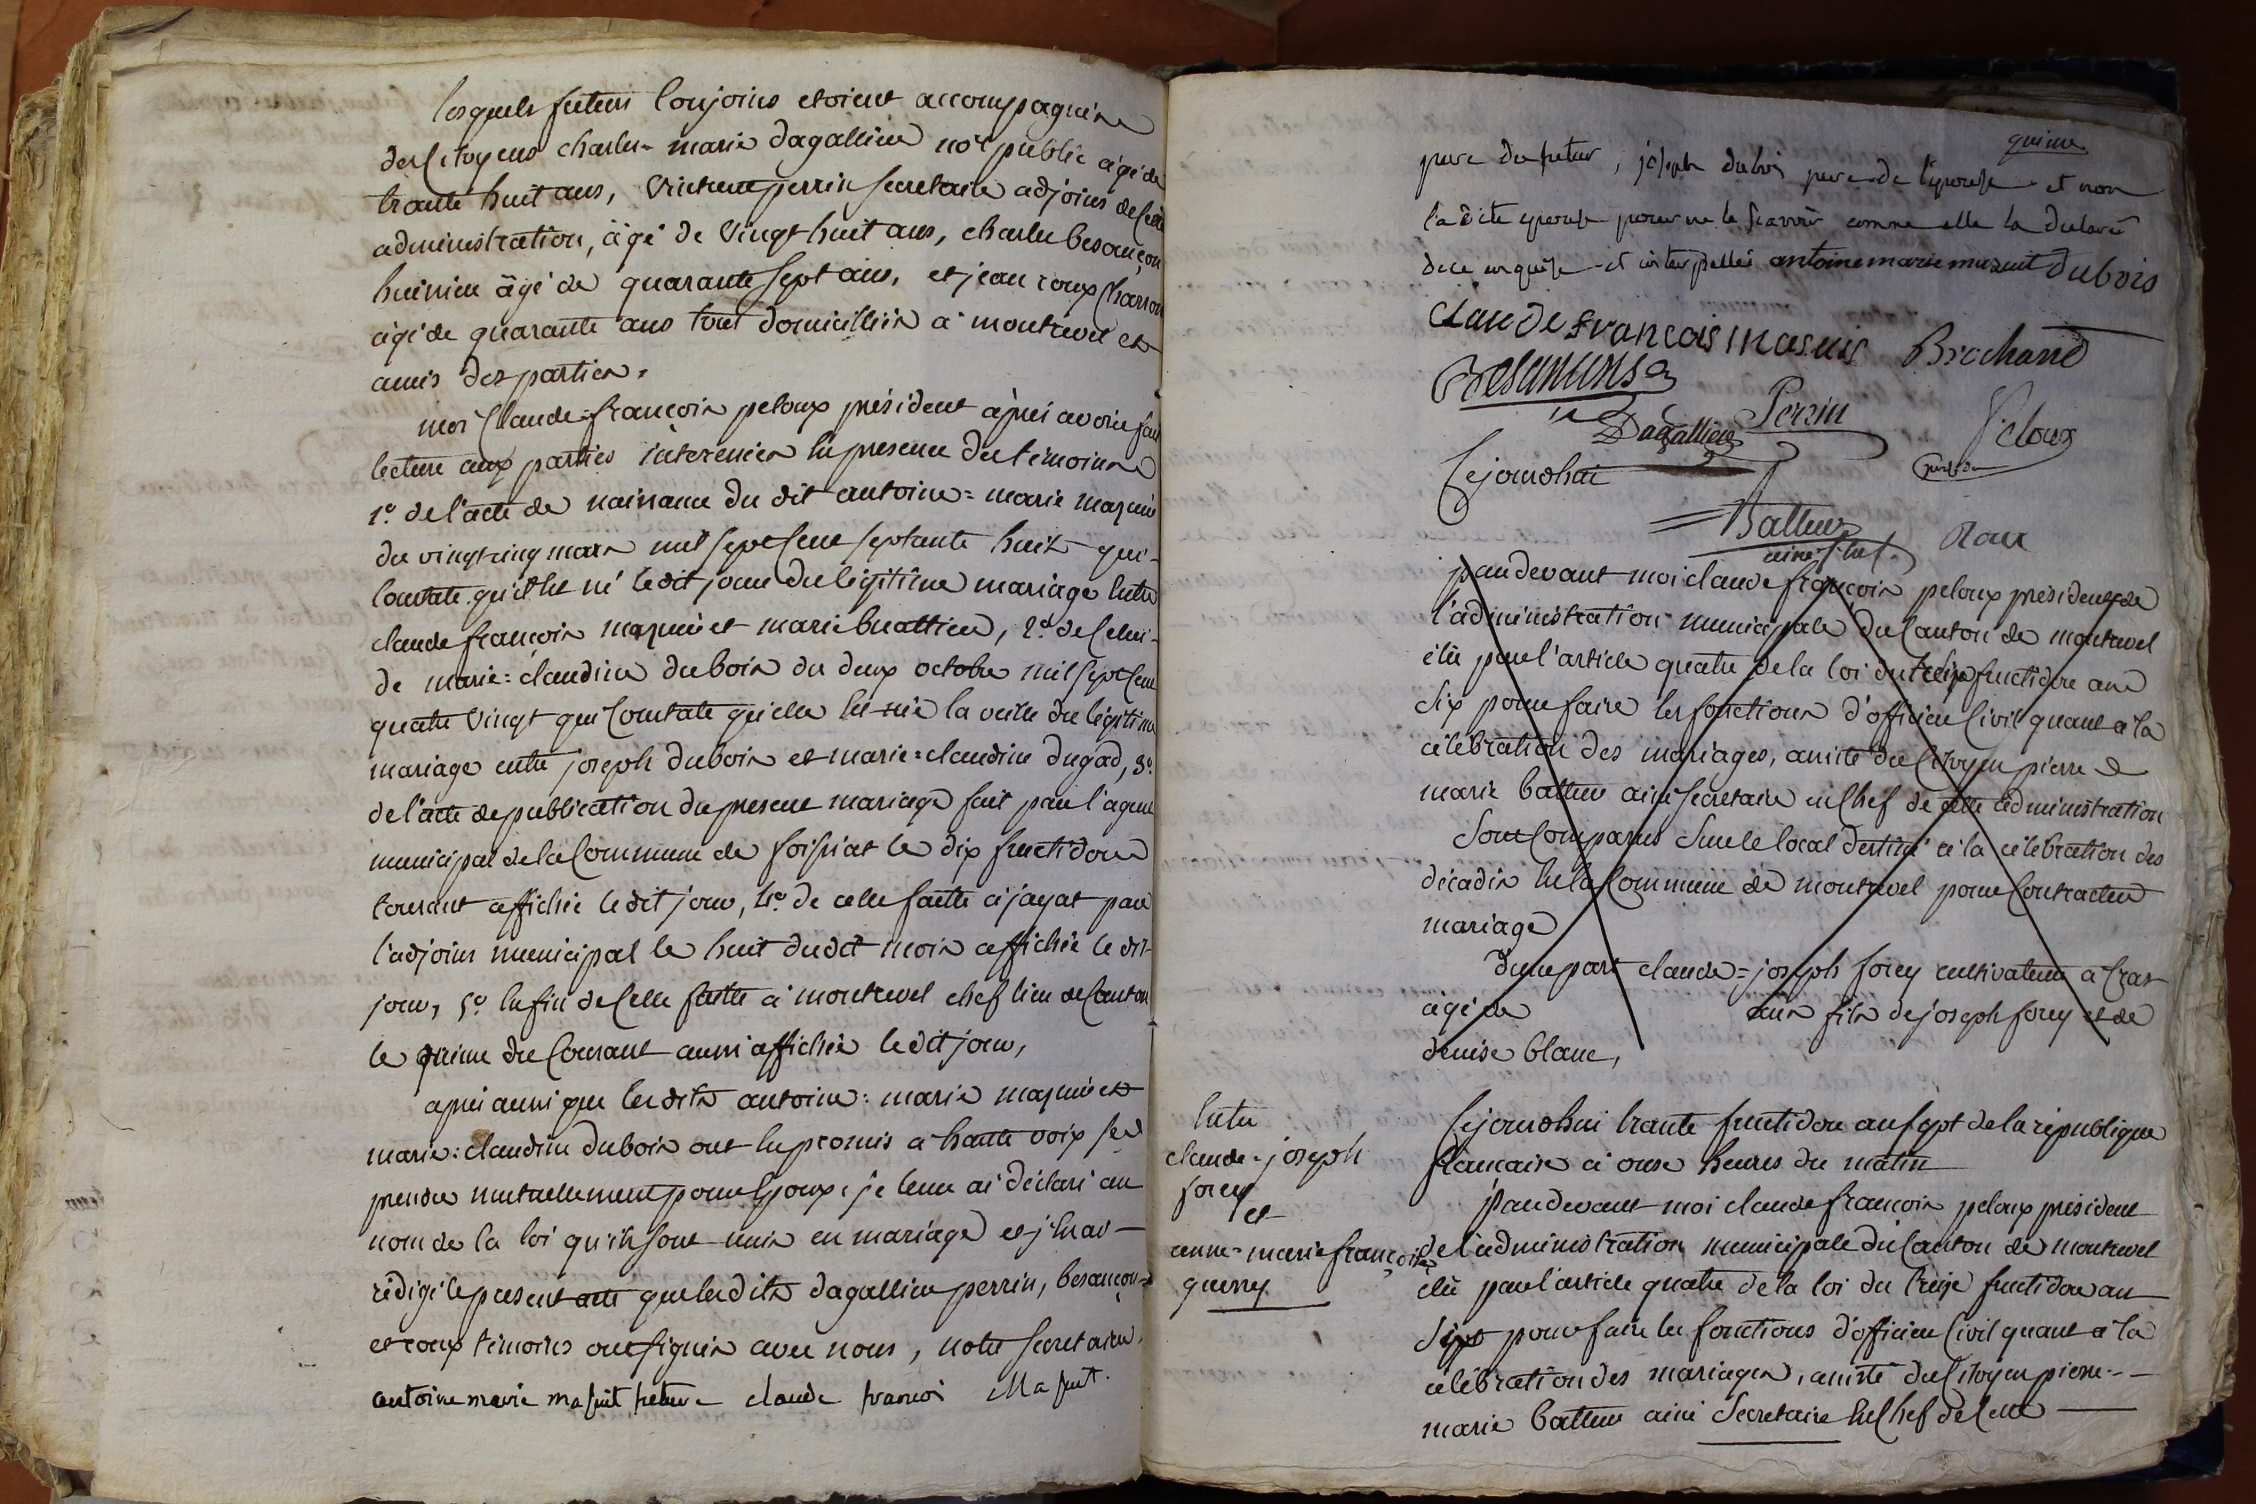 lesquels futurs Conjoins etoient accompagnés
des Citoyens charles=marie dagallier no.re public agé de
trante huit ans, Vincent perrin secretaire adjoins de cette
administration, âgé de vingt huit ans, charles besançon
huissier âgé de quarante Sept ans, et jean roux Charron
âgé de quarante ans tous domiciliés a montrevel et
amis des parties.
moi Claude=françois peloux président après avoir fait
lecture aux parties interessées En presence des témoins
1.° de l'acte de naissance du dit antoine=marie mazuir
du vingt cinq mars mil Sept Cent Septante huit qui
Constate qu'il Est né le dit jour du légitime mariage Entre
claude françois mazuir et marie buattier, 2.d de Celui
de marie=claudine dubois du deux octobre mil Sept Cent
quatre Vingt qui Constate qu'elle Est née la veille du légitime
mariage entre joseph dubois et marie=claudine dugad, 3.°
de l'acte de publication du present mariage fait par l'agent
municipal de la Commune de foissiat le dix fructidor
Courant affichée le dit jour, 4.° de celle faite a jayat par
l'adjoint municipal le huit dudit mois affichée le dit
jour, 5.° Enfin de Celle faite a montrevel chef lieu de Canton
le quinze du Courant aussi affichée le dit jour,
après aussi que les dits antoine=marie mazuir et
marie=claudine dubois ont Eu promis a haute voix Se
prendre mutuellement pour Epoux, je leur ai déclaré au
nom de la loi qu'ils Sont unis en mariage et j'En ai
rédigé le present acte que les dits dagallier perrin, besançon
et roux témoins ont Signés avec nous, notre Secretaire,
antoine marie masuit future claude francoi Masuit.
quinze
pere du futur, joseph dubois pere de l'epouse et non
la dite epouse pour ne le scavoir comme elle la declaré
de ce enquise et interpellée antoine marie musuit Dubois
claude francois masuis Brochand
Besançon
Dagallier Perrin Peloux
Cejourdhui presdt
Batteur Roux
ainé S. chef.
pardevant moi claude françois peloux président de
l'administration municipale du Canton de montrevel
élu par l'article quatre de la loi du treize fructidor an
Six pour faire les fonctions d'officier Civil quant a la
célébration des mariages, assisté du Citoyen pierre
marie batteur ainé Secretaire en Chef de cette administration
Sont Comparus Sur le local destiné a la célébration des
décadis En la Commune de montrevel pour Contracter
mariage
d'une part claude=joseph forey cultivateur a Cras
âgé de ans fils de joseph forey et de
denise blanc,
Entre
claude=joseph
forey
et
anne=marie françoise
guerrey
Cejourdhui trante fructidor an Sept de la république
française a onse heures du matin
pardevant moi claude françois peloux président
de l'administration municipale du Canton de montrevel
élu par l'article quatre de la loi du treize fructidor an
Sept pour faire les fonctions d'officier Civil quant a la
célébration des mariages, assisté du Citoyen pierre=
marie batteur ainé Secretaire En Chef de Cette